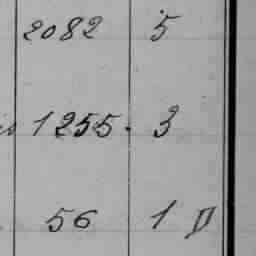 2082 5
1255. 3
56 1